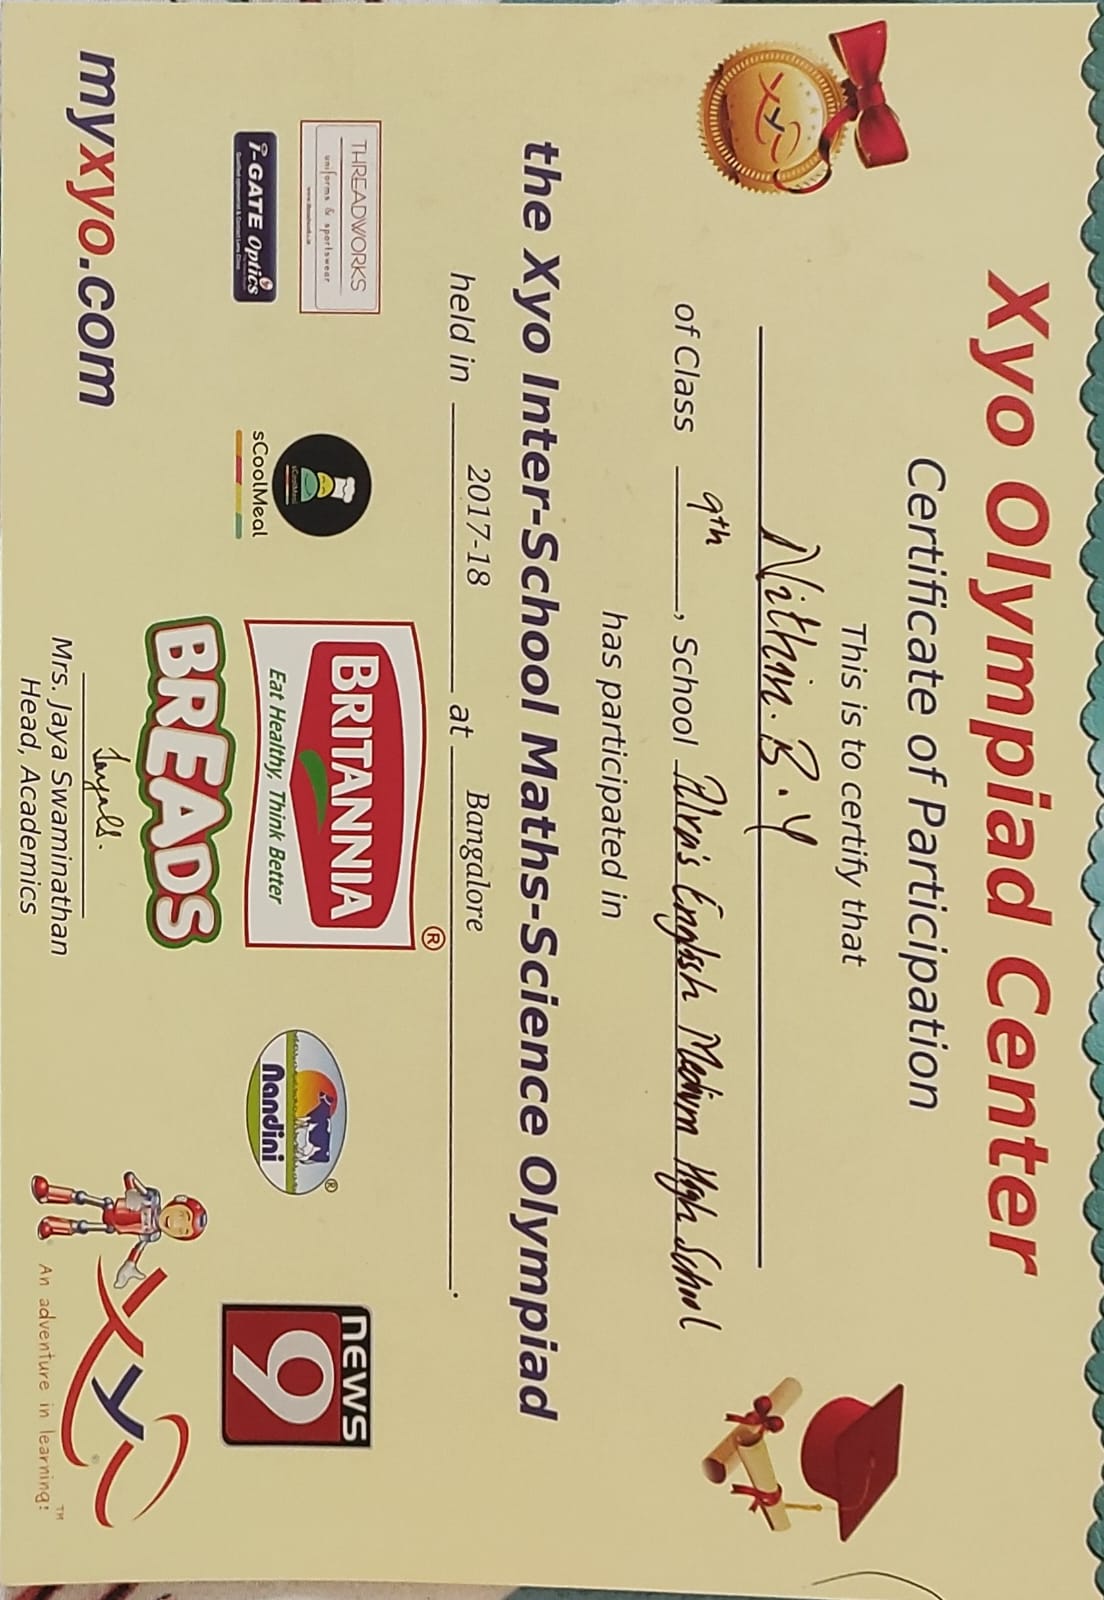 Xyo Olympiad Center
Certificate of Participation
This is to certify that
Nithin. B. Y
of Class 9th, School Alva's English Medium High School
has participated in
the Xyo Inter-School Maths-Science Olympiad
held in 2017-18 at Bangalore.
THREADWORKS
uniforms & sportswear
www.threadworks.in
i-GATE Optics
Qualified optometrist & Contact Lens Clinic
sCoolMeal
sCoolMeal
®
BRITANNIA
Eat Healthy, Think Better
BREADS
®
Nandini
NEWS
9
myxyo.com
Mrs. Jaya Swaminathan
Head, Academics
xyo
xyo
®
An adventure in learning!™